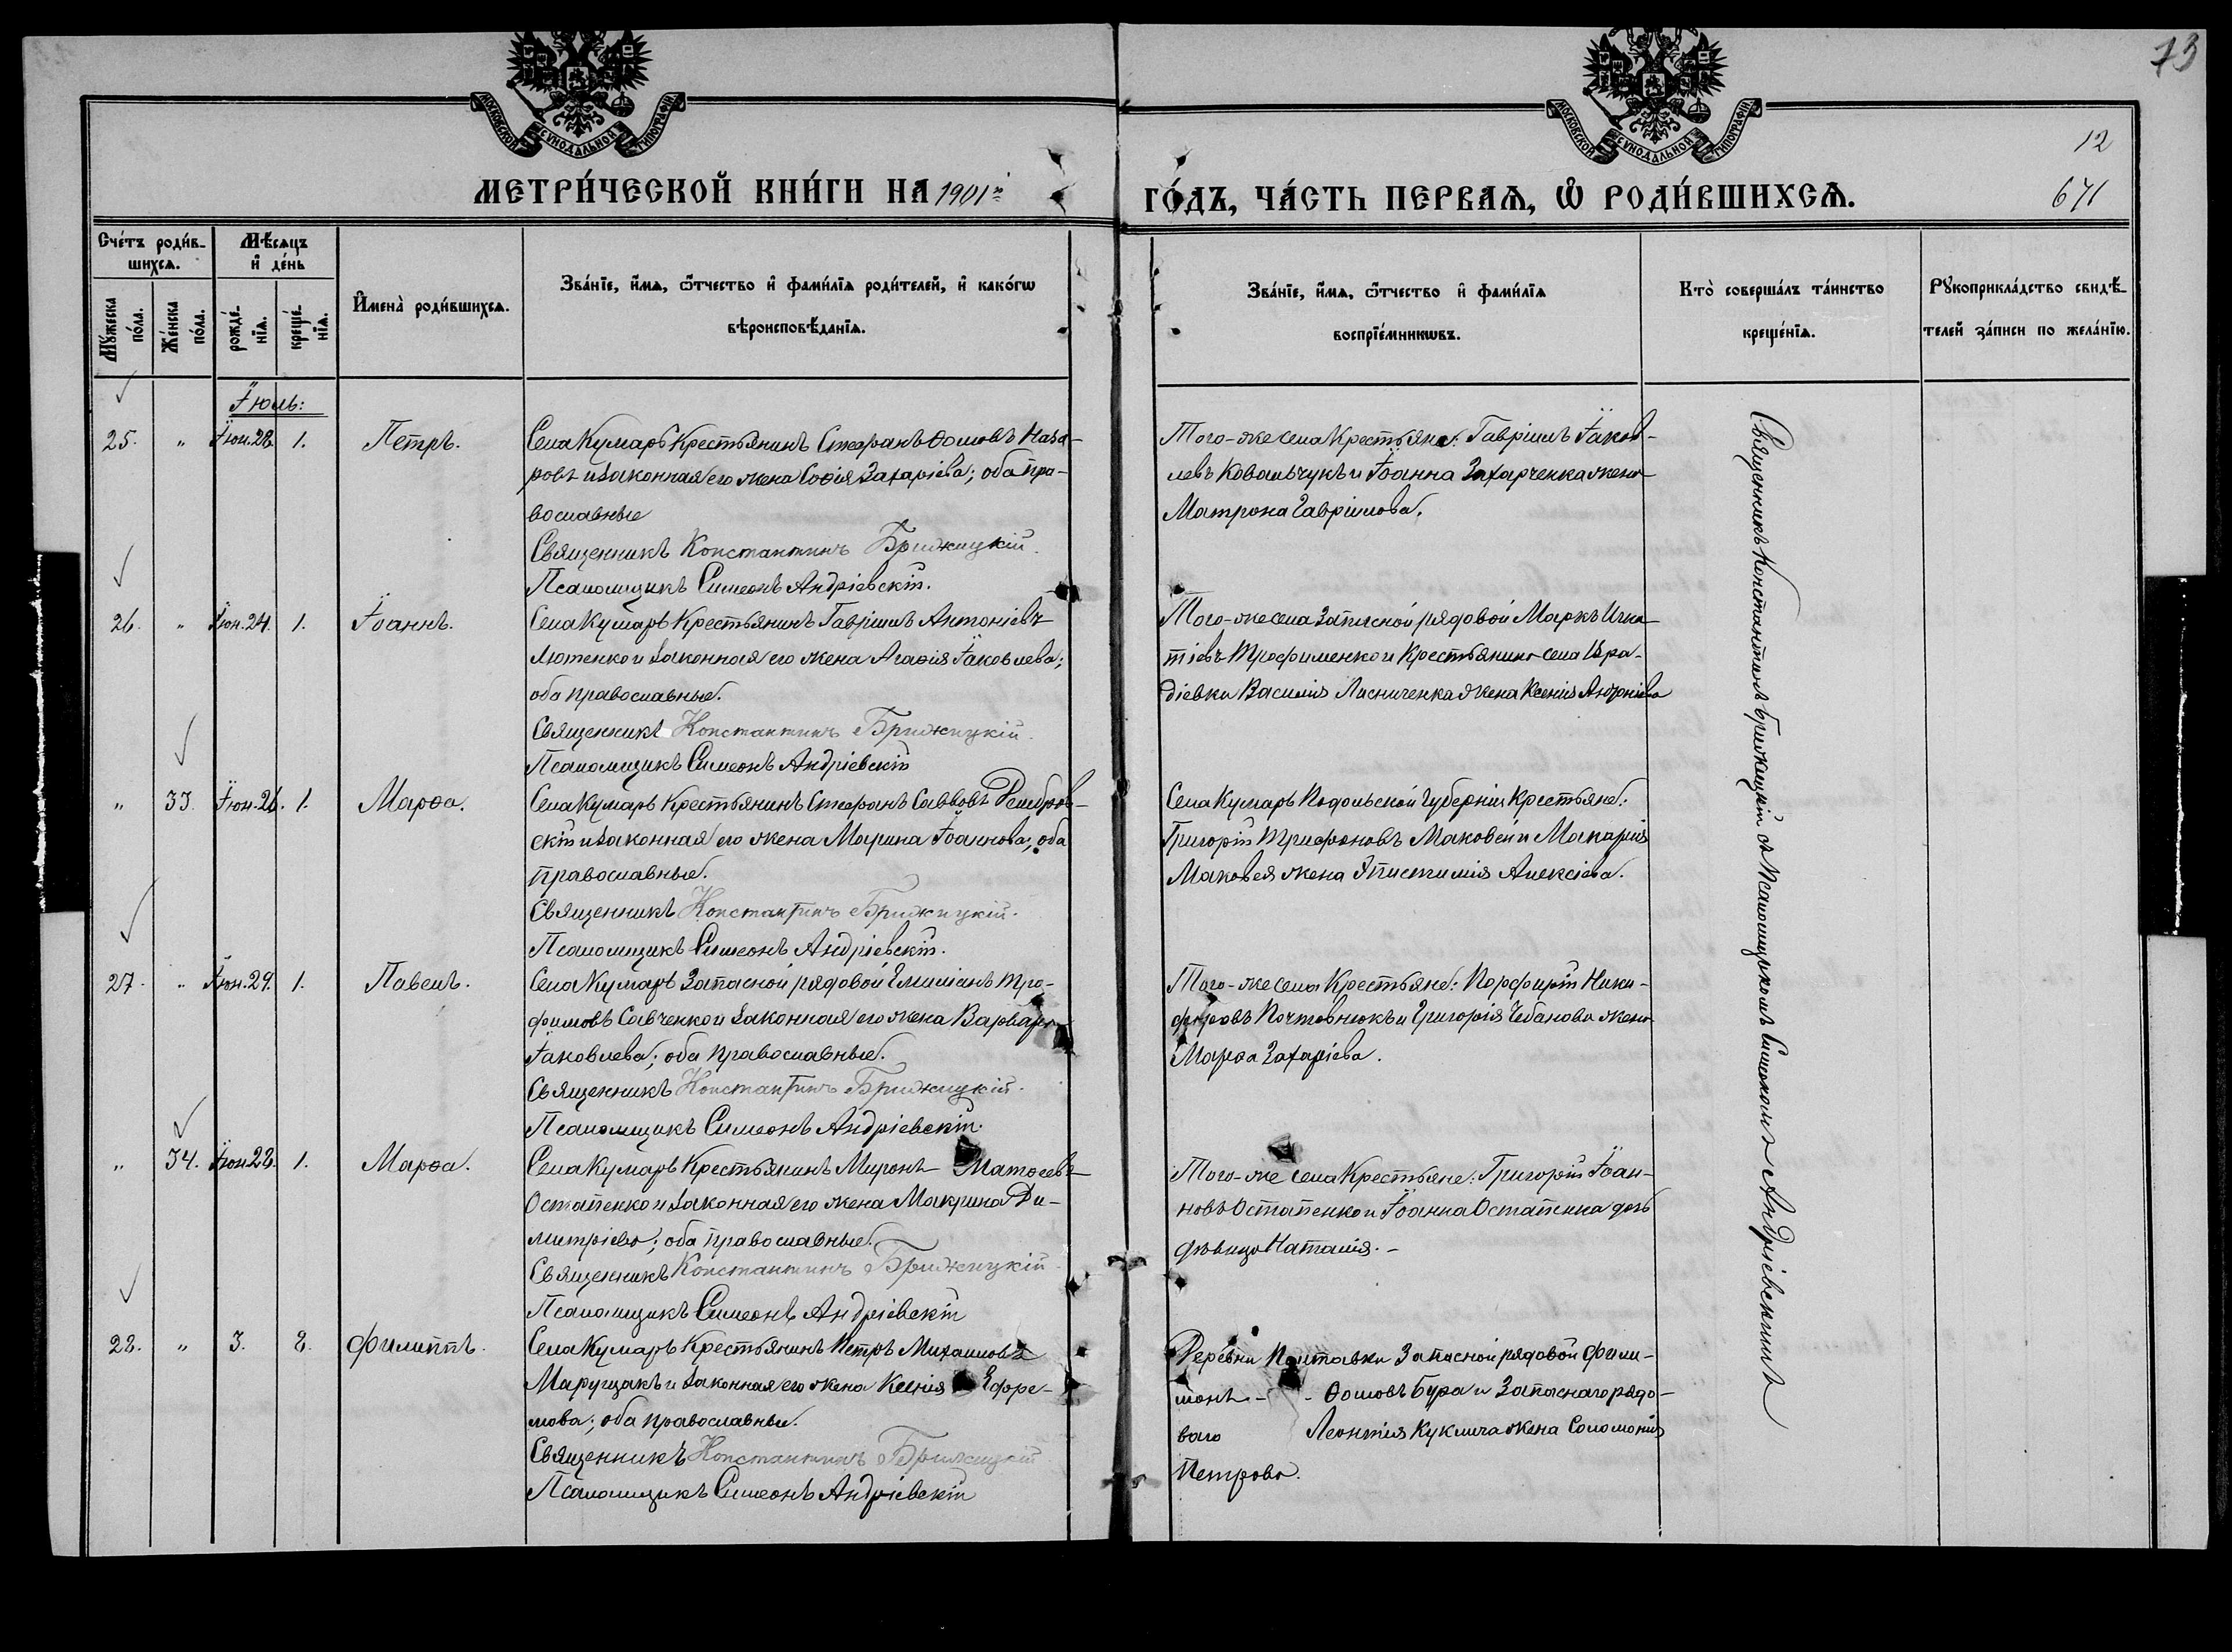 73
12
671
МОСКОВСКОЙ СѴНОДАЛЬНОЙ ТИПОГРАФІИ
МОСКОВСКОЙ СѴНОДАЛЬНОЙ ТИПОГРАФІИ
МЕТРИ́ЧЕСКОЙ КНИ́ГИ НА 1901й
ГО́ДЪ, ЧА́СТЬ ПЕРВАѦ, Ѡ҆ РОДИ́ВШИХСѦ.
Сче́тъ роди́в-
шихсѧ.
Мѣ́сѧцъ
и҆ де́нь
Мꙋ́жеска
по́ла.
Же́нска
по́ла.
рожде́-
нїѧ.
креще́-
нїѧ.
И҆мена̀ роди́вшихсѧ.
Зва́нїе, и҆́мѧ, ѻ҆́тчество и҆ фами́лїѧ роди́телей, и҆ како́гѡ
вѣроисповѣ́данїѧ.
Зва́нїе, и҆́мѧ, ѻ҆́тчество и҆ фами́лїѧ
воспрїе́мникѡвъ.
Кто̀ соверша́лъ та́инство
креще́нїѧ.
Рꙋкоприкла́дство свидѣ́-
телей за́писи по жела́нїю.
Іюль:
25. " Іюн. 28. 1. Петръ.
Села Кумаръ Крестьянинъ Стефанъ Ѳомовъ Наза-
ровъ и законная его жена Софія Захаріева; оба пра-
вославные
Священникъ Константинъ Бриджицкій.
Псаломщикъ Симеонъ Андріевскій.
Того-же села Крестьяне: Гавріилъ Іаков-
левъ Ковальчукъ и Іоанна Захарченка жена
Матрона Гавріилова.
26. " Іюн. 24. 1. Іоаннъ.
Села Кумаръ Крестьянинъ Гавріилъ Антоніевъ
Лютенко и законная его жена Агафія Іаковлева;
оба православные.
Священникъ Константинъ Бриджицкій.
Псаломщикъ Симеонъ Андріевскій
Того-же села Запасной рядовой Маркъ Игна-
тіевъ Трофименко и Крестьянина села
Василія Лисниченка жена Ксенія Антоніева
" 33. Іюн. 26. 1. Марѳа.
Села Кумаръ Крестьянинъ Стефанъ Савовъ Домбров-
скій и законная его жена Марина Іоаннова; оба
православные.
Священникъ Константинъ Бриджицкій.
Псаломщикъ Симеонъ Андріевскій.
Села Кумаръ Подольской Губерніи Крестьяне:
Григорій Трифоновъ Маковей и Макарія
Маковея жена Епистимія Алексіева.
27. " Іюн. 29. 1. Павелъ.
Села Кумаръ Запасной рядовой Емиліанъ Тро-
фимовъ Савченко и законная его жена Варвара
Іаковлева; оба православные.
Священникъ Константинъ Бриджицкій.
Псаломщикъ Симеонъ Андріевскій.
Того-же села Крестьяне: Порфирій Ники-
форовъ Почтовнюкъ и Григорія Чебанова жена
Марѳа Захаріева.
" 34. Іюн 28. 1. Марѳа.
Села Кумаръ Крестьянинъ Миронъ - Матѳеевъ
Остапенко и законная его жена Макрина Ди-
митріева; оба православные.
Священникъ Константинъ Бриджицкій.
Псаломщикъ Симеонъ Андріевскій
Того-же села Крестьяне: Григорій Іоан-
новъ Остапенко и Іоанна Остапенка дочь
дѣвица Наталія. -
28. " 3. 8. Филиппъ.
Села Кумаръ Крестьянинъ Петръ Михаиловъ
Марущакъ и законная его жена Ксенія Ефре-
мова; оба православные.
Священникъ Константинъ Бриджицкій
Псаломщикъ Симеонъ Андріевскій
Деревни Полтавки Запасной рядовой Фили-
монъ - - Ѳомовъ Бура и Запаснаго рядо-
ваго Леонтія Куклича жена Соломонія
Петрова.
Священникъ Константинъ Бриджицкій съ Псаломщикомъ Симеономъ Андріевскимъ